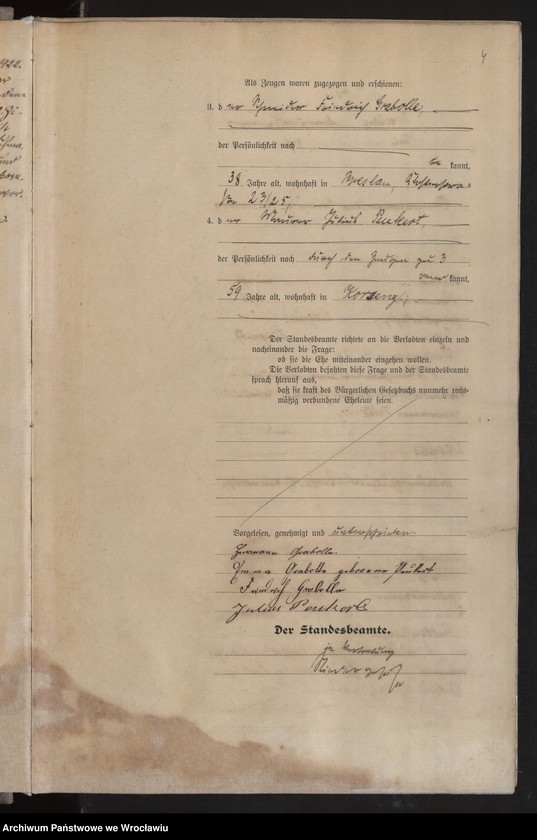 4
Als Zeugen waren zugezogen und erschienen:
3. der Schneider Friedrich Grabolle,
der Persönlichkeit nach
be kannt,
38 Jahre alt, wohnhaft in Breslau,
23/25,
4. der Maurer Julius Peukert,
der Persönlichkeit nach durch den Zeugen zu 3
aner kannt,
59 Jahre alt, wohnhaft in
Der Standesbeamte richtete an die Verlobten einzeln und
nacheinander die Frage:
ob sie die Ehe miteinander eingehen wollen.
Die Verlobten bejahten diese Frage und der Standesbeamte
sprach hierauf aus,
daß sie kraft des Bürgerlichen Gesetzbuchs nunmehr recht-
mäßig verbundene Eheleute seien.
Vorgelesen, genehmigt und unterschrieben.
Hermann Grabolle
Emma Grabolle geborene Peukert
Friedrich Grabolle
Julius Peukert
Der Standesbeamte.
in Vertretung
Archiwum Państwowe we Wrocławiu